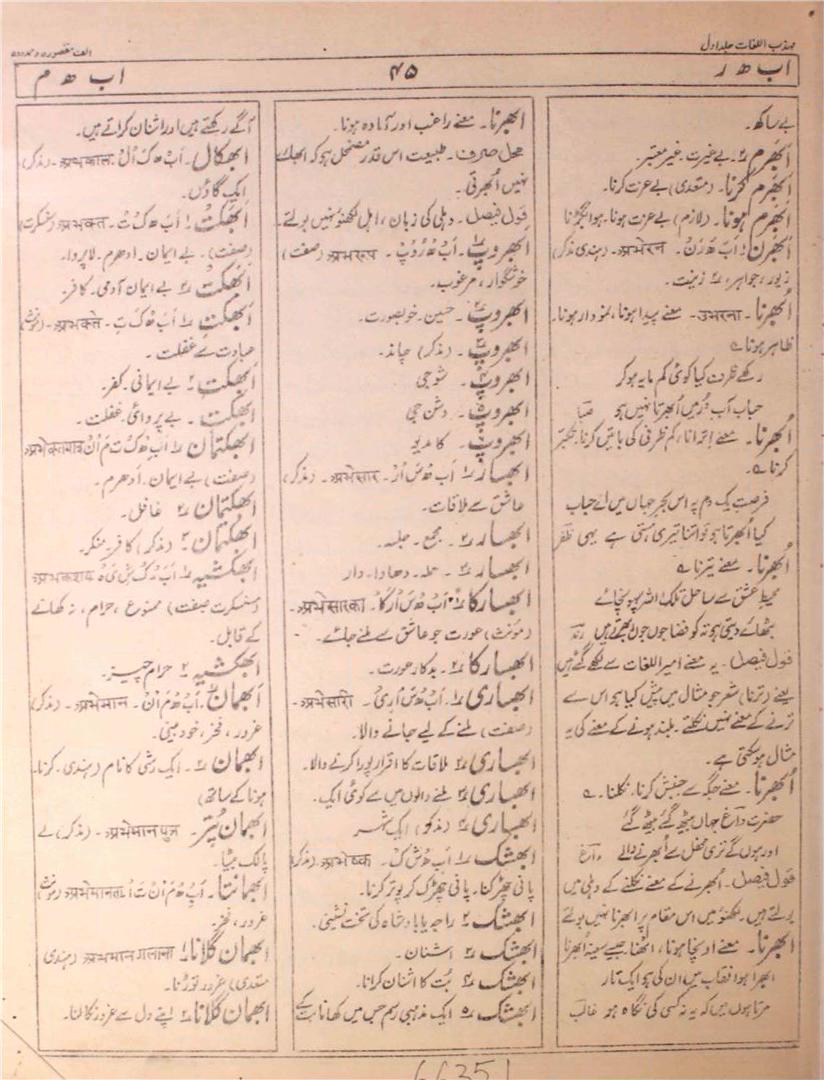 مہذب اللغات جلد اول
الف مقصورہ و ممدودہ
اب ھ ر
۴۵
اب ھ م
بے ساکھ۔
اَبھَرم ۲؍۔ بے غیرت۔ غیر معتبر۔
اَبھَرم کرنا۔ (متعدی) بے عزت کرنا۔
اَبھَرم ہونا۔ (لازم) بے عزت ہونا۔ ہوا بگڑنا
اَبھرن ۱؍ اَب ھ رَن۔ प्रभेरन۔ (ہندی مذکر)
زیور، جواہر، ۲؍ زینت۔
اُبھرنا۔ उभरना۔ معنے پیدا ہونا، نمودار ہونا۔
ظاہر ہونا ے
رکھے ظرف کیا کوئی کم مایہ ہو کر
حباب آب دُر میں اُبھرتا نہیں ہو صبا
اُبھرنا۔ معنے اِترانا، کم ظرفی کی باتیں کرنا، تکبر
کرنا ے
فرصتِ یک دم پہ اس بحرِ جہاں میں اے حباب
کیا اُبھرتا ہو تو اتنا تیری ہستی ہے یہی ظفر
اُبھرنا۔ معنے تیرنا ے
محیط عشق سے ساحل تلک اللہ پہونچائے
بٹھائے دیتی ہو تہ کو قضا جوں جوں ابھرتے ہیں رند
قول فیصل۔ یہ معنے امیر اللغات سے لکھے گئے ہیں
یعنے (ترنا) شعر جو مثال میں پیش کیا ہو اس سے
ترنے کے معنے نہیں نکلتے۔ بلند ہونے کے معنے کی یہ
مثال ہو سکتی ہے۔
اُبھرنا۔ معنے جگہ سے جنبش کرنا، نکلنا۔ ے
حضرت داغ جہاں بیٹھ گئے بیٹھ گئے
اور ہوں گے تری محفل سے اُبھرنے والے داغ
قول فیصل۔ اُبھرنے کے معنے نکلنے کے دہلی میں
بولتے ہیں۔ لکھنؤ میں اس مقام پر ابھرنا نہیں بولتے
اُبھرنا۔ معنے اونچا ہونا، اٹھنا جیسے سینہ ابھرنا
ابھرا ہوا نقاب میں ان کی ہو ایک تار
مرتا ہوں میں کہ یہ نہ کسی کی نگاہ ہو غالب
اُبھرنا۔ معنے راغب اور آمادہ ہونا۔
محل صرف۔ طبیعت اس قدر مضمحل ہو کہ ابھارے
نہیں اُبھرتی۔
قول فیصل۔ دہلی کی زبان، اہل لکھنؤ نہیں بولتے۔
ابھروپ ۱؍۔ اَبْ ھ رُوپْ۔ प्रभरूप (صفت)
خوشگوار، مرغوب۔
ابھروپ ۲؍۔ حسین۔ خوبصورت۔
ابھروپ ۳؍۔ (مذکر) چاند۔
ابھروپ ۴؍۔ شوجی
ابھروپ ۵؍۔ وشن جی
ابھروپ ۶؍۔ کامدیو
ابھسار ۱؍ اَبْ ھ سَ اَرْ۔ प्रभेसार۔ (مذکر)
عاشق سے ملاقات۔
ابھسار ۲؍۔ مجمع۔ جلسہ۔
ابھسار ۳؍۔ حملہ۔ دھاوا۔ وار
ابھسارکا ۱؍ اَبْ ھ سَ اَرکَا۔ प्रभेसारका۔
(مؤنث) عورت جو عاشق سے ملنے جائے۔
ابھسارکا ۲؍۔ بدکار عورت۔
ابھساری ۱؍۔ اَبْ ھ سَ اَرِیْ۔ प्रभेसारी۔
(صفت) ملنے کے لیے جانے والا۔
ابھساری ۲؍ ملاقات کا اقرار پورا کرنے والا۔
ابھساری ۳؍ ملنے والوں میں سے کوئی ایک۔
ابھساری ۴؍ (مذکر) ایک شہر
ابھشک ۱؍ اَبْ ھ شَ کْ۔ प्रभेष्क۔ (مذکر)
پانی چھڑکنا۔ پانی چھڑک کر پوتر کرنا۔
ابھشک ۲؍ راجہ یا بادشاہ کی تخت نشینی۔
ابھشک ۳؍ اشنان۔
ابھشک ۴؍ بُت کا اشنان کرانا۔
ابھشک ۵؍ ایک مذہبی رسم جس میں کھانا بت کے
آگے رکھتے ہیں اور اشنان کراتے ہیں۔
ابھکال۔ اَبْ ھ کَ الْ۔ प्रभकाल۔ (مذکر)
ایک گاؤں۔
اَبھکت ۱؍ اَبَ ھ کَ تْ۔ प्रभक्त۔ (سنسکرت)
(صفت)۔ بے ایمان۔ ادھرم۔ لاپروا۔
اَبھکت ۲؍ بے ایمان آدمی۔ کافر۔
اَبھکت ۱؍ اَبَ ھ کَ تِ۔ प्रभक्ते۔ (مؤنث)
عبادت سے غفلت۔
اَبھکت ۲؍ بے ایمانی۔ کفر۔
اَبھکت ۳؍۔ بے پروائی۔ غفلت۔
ابھکتمان ۱؍ اَبْ ھ کَ تِ مَ انْ
(صفت) بے ایمان۔ ادھرم۔
ابھکتمان ۲؍ غافل۔
ابھکتمان ۳؍ (مذکر) کافر۔ منکر۔
ابھکشیہ ۱؍
(سنسکرت صفت) ممنوع، حرام، نہ کھانے
کے قابل۔
ابھکشیہ ۲؍ حرام چیز۔
اَبھمان ۱؍ اَبِ ھ مَ انْ۔ प्रभेमान۔ (مذکر)
غرور، فخر، خود بینی۔
ابھمان ۲؍۔ ایک رشی کا نام (ہندی۔ کرنا۔
ہونا کے ساتھ)
ابھمان پُتر۔ प्रभेमान पुत्र۔ (مذکر) لے
پالک بیٹا۔
ابھمانتا۔ اَبِ ھ مَ انْ تَ اْ۔ प्रभेमानता۔ (مؤنث)
غرور، فخر۔
ابھمان گلانا ۱؍ प्रभमान गलाना (ہندی
متعدی) غرور توڑنا۔
ابھمان گلانا ۲؍ اپنے دل سے غرور نکالنا۔
66351